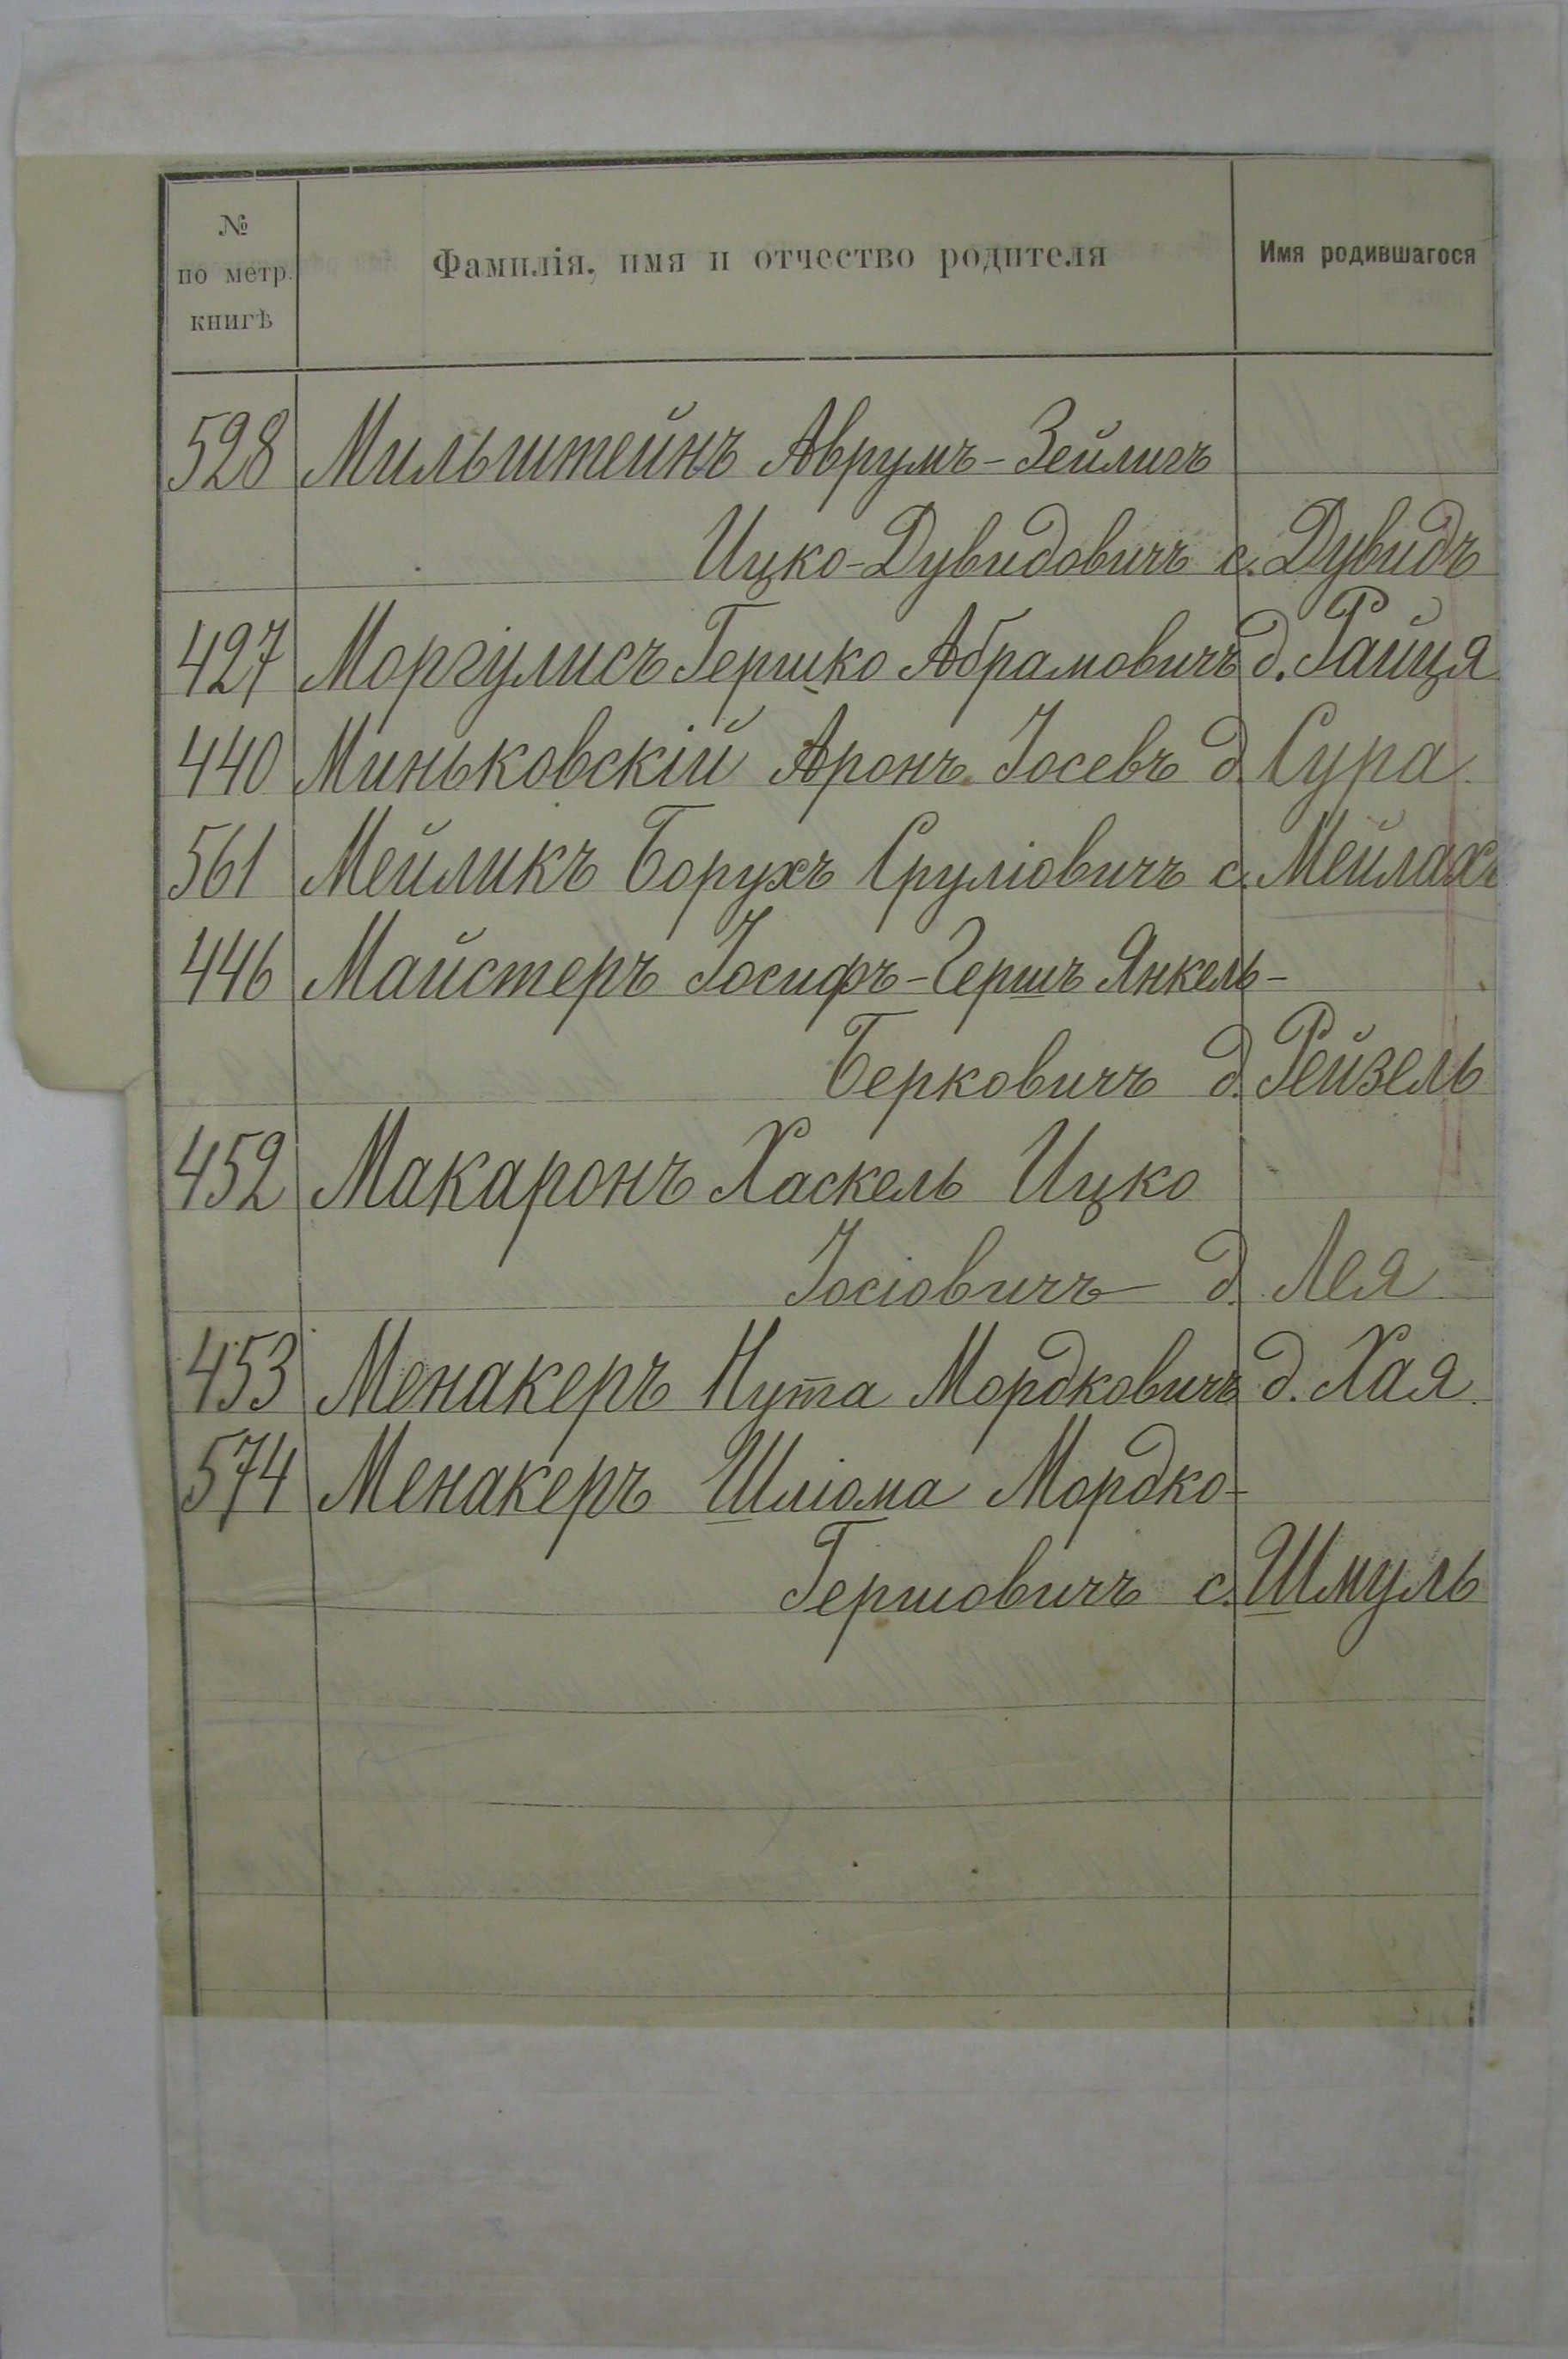 № по метр. книгѣ Фамилія, имя и отчество родителя Имя родившагося
528 Мильштейнъ Аврумъ-Зейлигъ
Ицко-Дувидовичъ с. Дувидъ
427 Моргулисъ Гершко Абрамовичъ д. Райця
440 Миньковскій Аронъ Іосевъ д. Сура
561 Мейликъ Борухъ Сруліовичъ с. Мейлахъ
446 Майстеръ Іосифъ-Гершъ Янкель-
Берковичъ д. Рейзель
452 Макаронъ Хаскель Ицко
Іосіовичъ д. Лея
453 Менакеръ Нута Мордковичъ д. Хая
574 Менакеръ Шліома Мордко-
Гершовичъ с. Шмуль